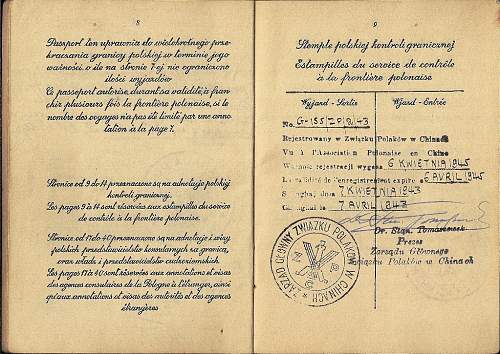 8
Paszport ten uprawnia do wielokrotnego prze-
kraczania granicy polskiej w terminie jego
ważności, o ile na stronie 7-ej nie ograniczono
ilości wyjazdów
Ce passeport autorise, durant sa validité, à fran-
chir plusieurs fois la frontière polonaise, si le
nombre des voyages n'a pas été limité par une anno-
tation à la page 7.
Stronice od 9 do 14 przeznaczone są na adnotacje polskiej
kontroli granicznej.
Les pages 9 à 14 sont réservées aux estampilles du service
de contrôle à la frontière polonaise.
Stronice od 17 do 40 przeznaczone są na adnotacje i wizy
polskich przedstawicielstw konsularnych za granicą,
oraz władz i przedstawicielstw cudzoziemskich.
Les pages 17 à 40 sont réservées aux annotations et visas
des agences consulaires de la Pologne à l'étranger, ainsi
qu'aux annotations et visas des autorités et des agences
étrangères
9
Stemple polskiej kontroli granicznej
Estampilles du service de contrôle
à la frontière polonaise
Wyjazd - Sortie
Wjazd - Entrée
No. G-155/ZP/2/43
Rejestrowany w Związku Polaków w Chinach
Vu à l'Association Polonaise en Chine
Ważność rejestracji wygasa 6 KWIETNIA 1945
La validité de l'enregistrement expire 6 AVRIL 1945
dnia 7 KWIETNIA 1943
7 AVRIL 1943
Dr. Stan. Tomaszewski
Prezes
Zarządu Głównego
Związku Polaków w Chinach
ZARZĄD GŁÓWNY ZWIĄZKU POLAKÓW W CHINACH